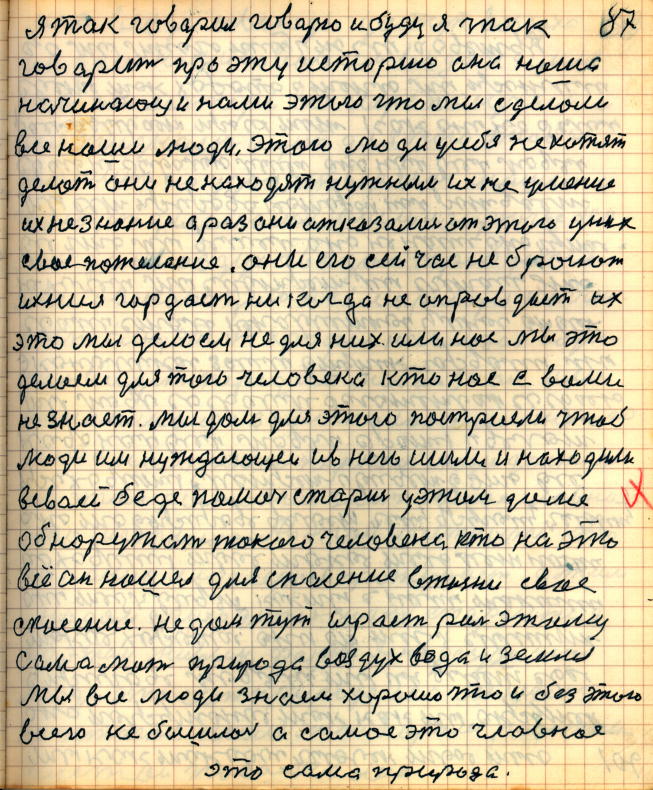 я так говарил говарю и буду я так 87
говарит про эту историю она наша
начинающи нами этого что мы сделали
все наши люди. Этого люди у себя не хотят
делат они не находят нужным их не умение
их не знание а раз они отказалис от этого у них
свае пожелание. они его сей час не бросают
ихния гордаст ни когда не оправдает их
это мы делаем не для них или нас мы это
делаем для того человека кто нас с вами
не знает. мы дом для этого построели чтоб
люди им нуждающеи и в него шили и находили
в сваей беде помоч старых у этом доме
обнаружат такого человека кто на это
всё он нашел для спасение в жизни свое
спасение. не дом тут играет рол этаму
сама мат природа воздух вода и земля
мы все люди знаем хорошо что и без этого
всего не бывало а самое это главное
это сама природа.